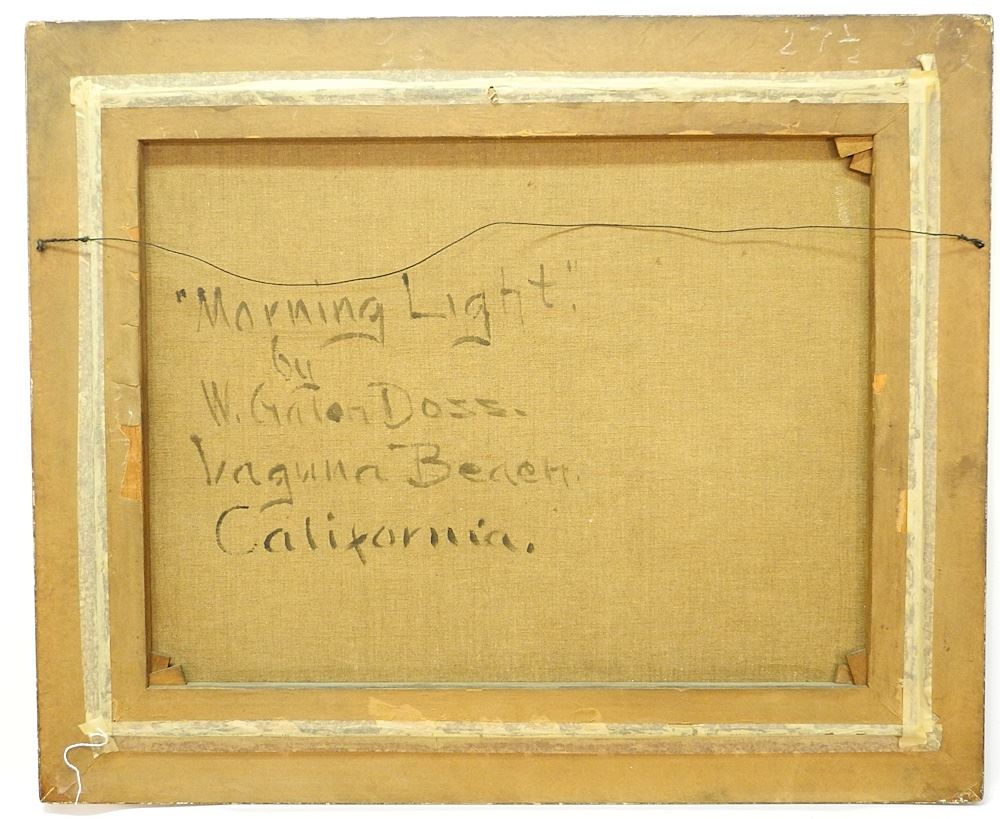 "Morning Light".
by
W. Galon Doss.
Laguna Beach.
California.